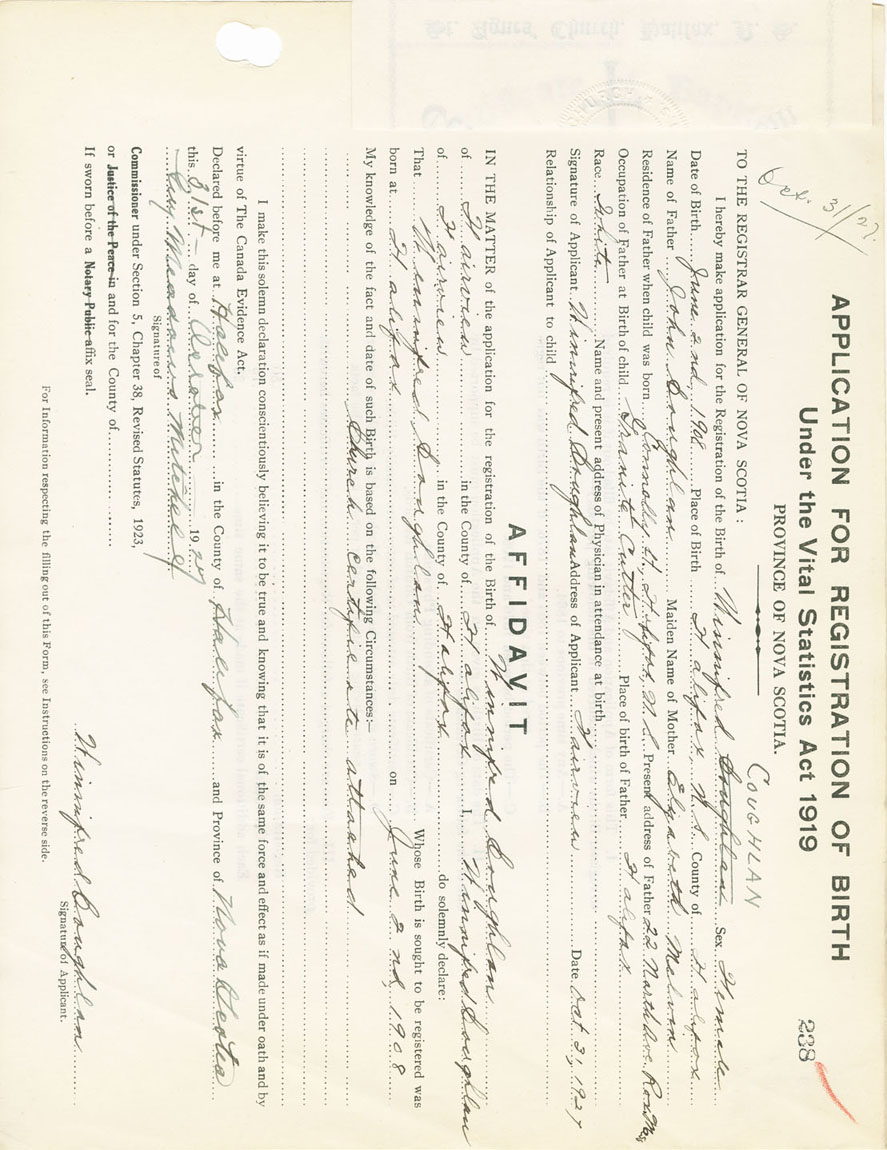 St. Agnes' Church, Halifax, N. S.
Oct. 31/27.
APPLICATION FOR REGISTRATION OF BIRTH
Under the Vital Statistics Act 1919
238
PROVINCE OF NOVA SCOTIA.
COUGHLAN
TO THE REGISTRAR GENERAL OF NOVA SCOTIA :
I hereby make application for the Registration of the Birth of Winnifred Coughlan Sex Female
Date of Birth June 2nd, 1908 Place of Birth Halifax N.S. County of Halifax
Name of Father John Coughlan Maiden Name of Mother Elizabeth
Residence of Father when child was born St., Halifax, N.S. Present address of Father 22 North Ave.
Occupation of Father at Birth of child Granite Cutter Place of birth of Father Halifax
Race White Name and present address of Physician in attendance at birth
Signature of Applicant Winnifred Coughlan Address of Applicant Fairview Date Oct 31, 1927
Relationship of Applicant to child
AFFIDAVIT
IN THE MATTER of the application for the registration of the Birth of Winnifred Coughlan
of Fairview in the County of Halifax I, Winnifred Coughlan
of Fairview in the County of Halifax do solemnly declare:
That Winnifred Coughlan Whose Birth is sought to be registered was
born at Halifax on June 2nd, 1908
My knowledge of the fact and date of such Birth is based on the following Circumstances:—
Church certificate attached
I make this solemn declaration conscientiously believing it to be true and knowing that it is of the same force and effect as if made under oath and by
virtue of The Canada Evidence Act.
Declared before me at Halifax in the County of Halifax and Province of Nova Scotia
this 31st day of October 1927
Signature of
Commissioner under Section 5, Chapter 38, Revised Statutes, 1923,
or Justice of the Peace in and for the County of
If sworn before a Notary Public affix seal.
Winnifred Coughlan
Signature of Applicant.
For Information respecting the filling out of this Form, see Instructions on the reverse side.